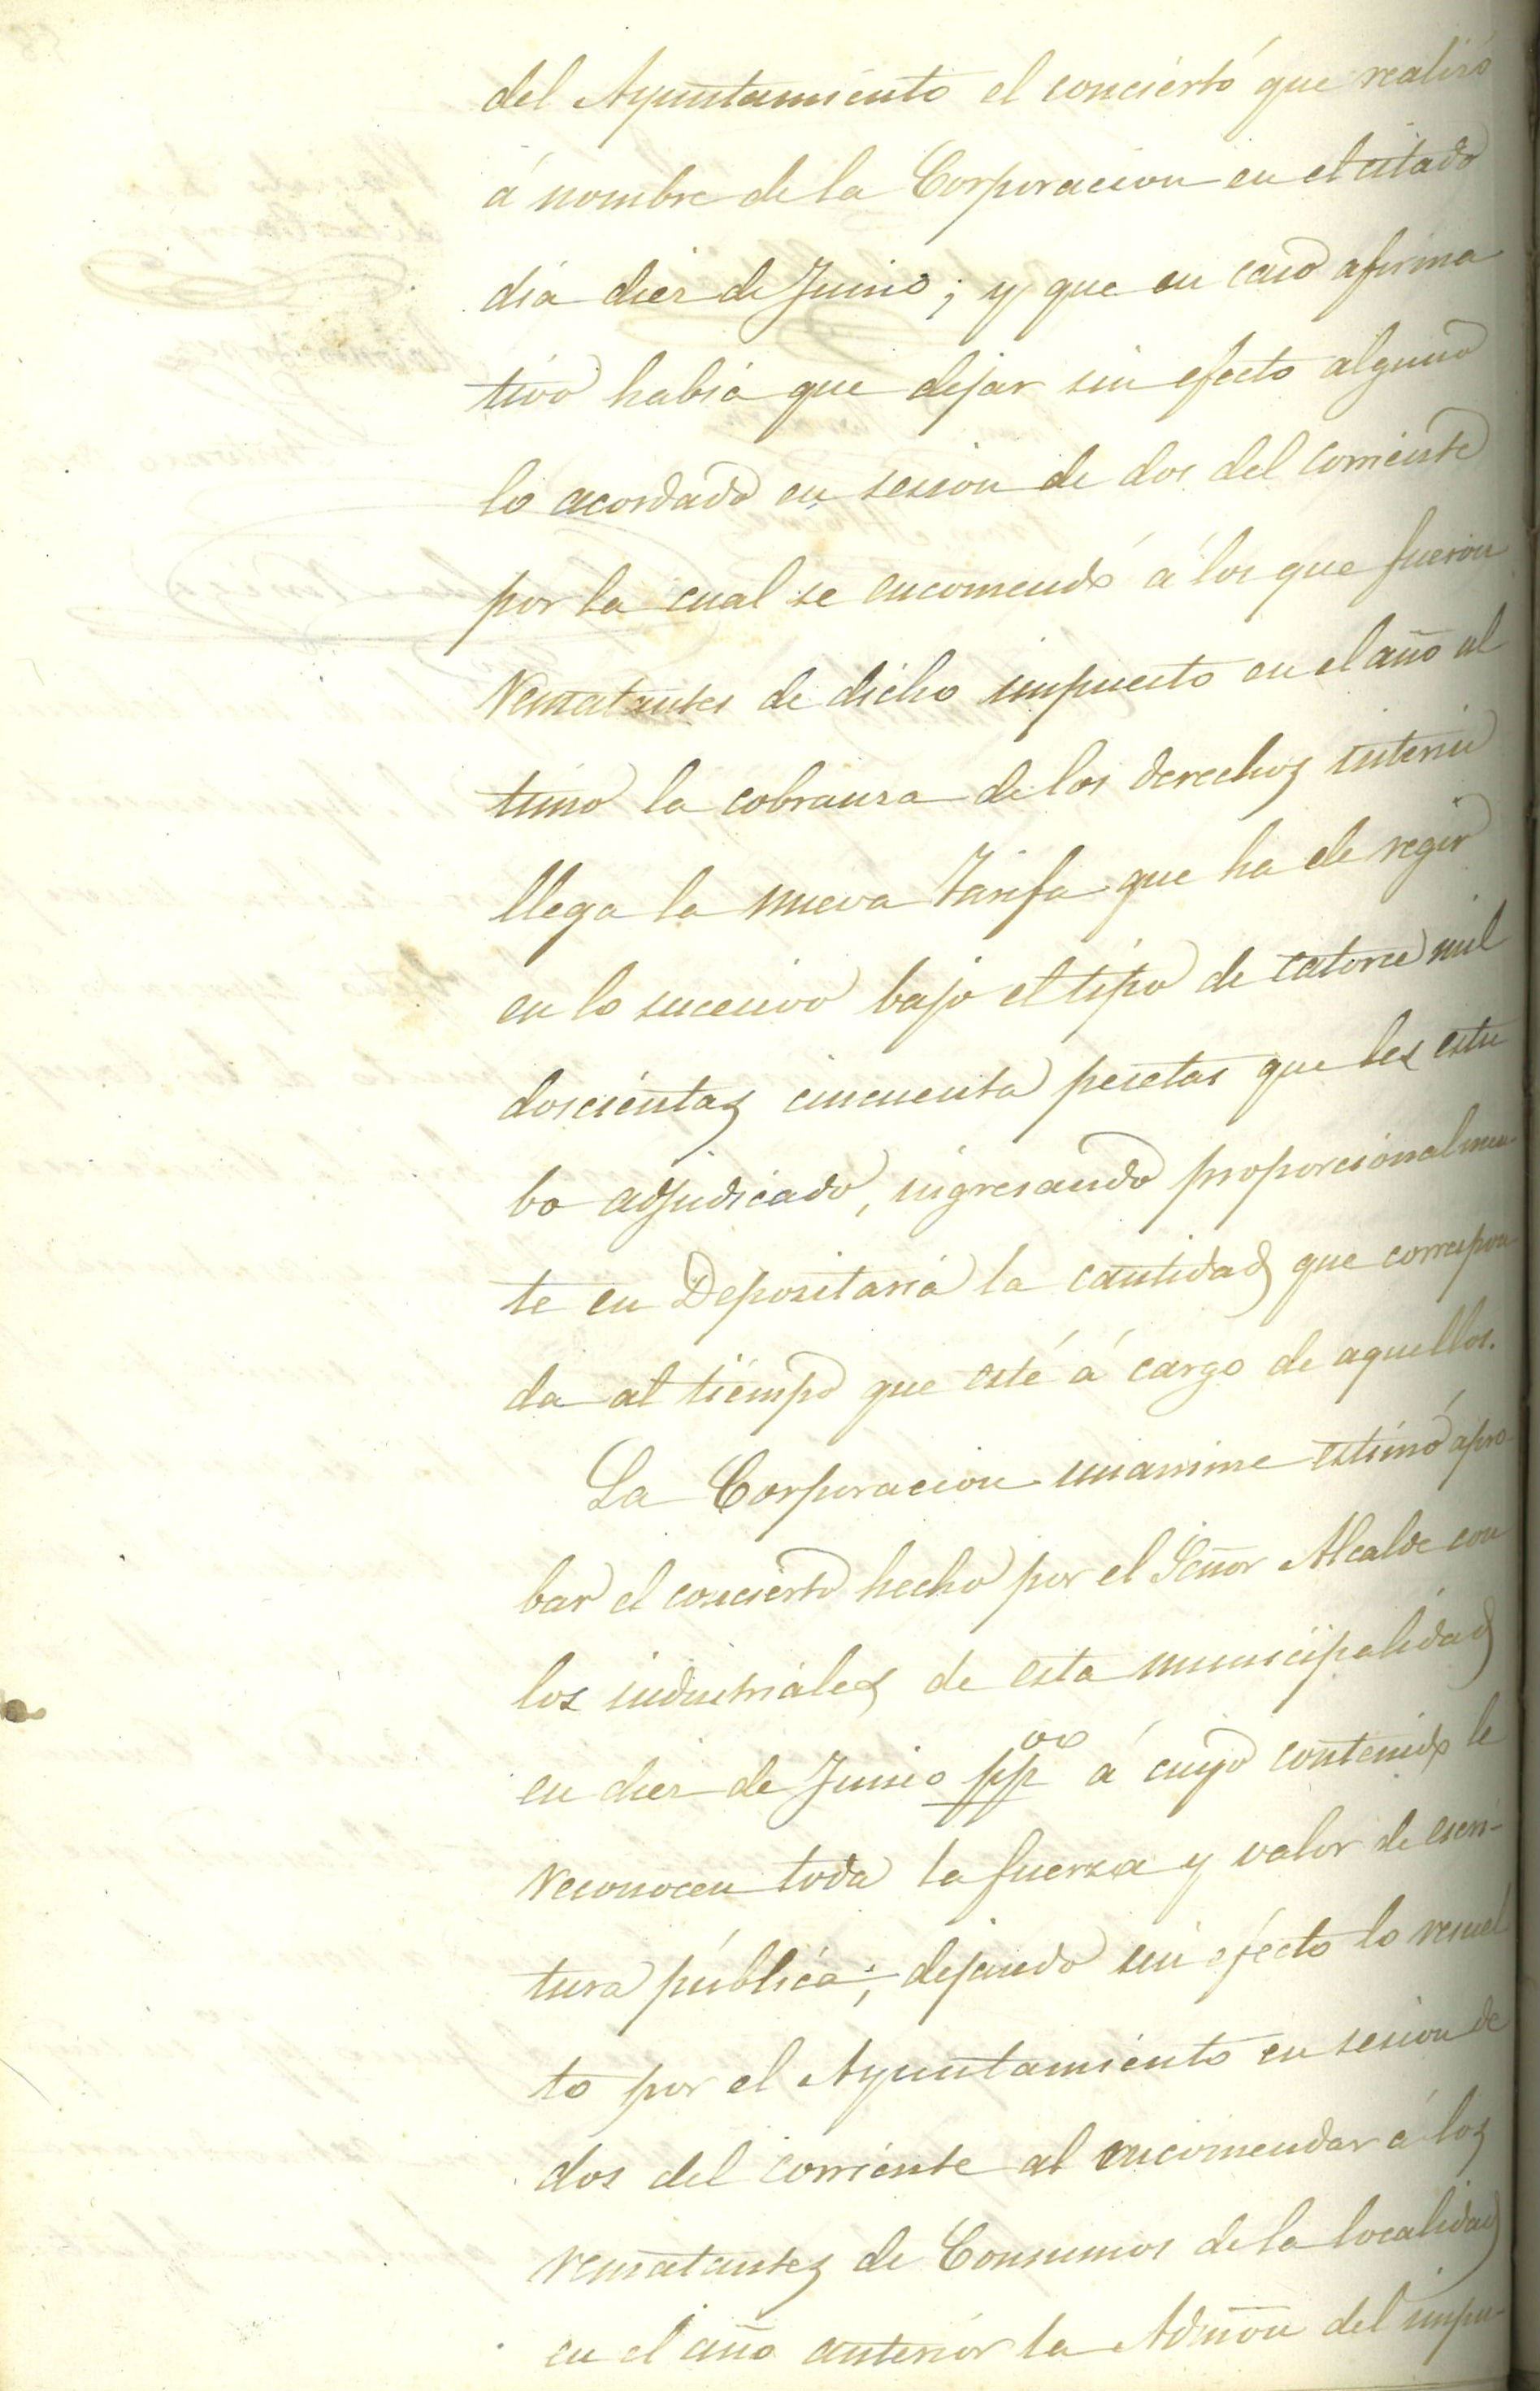 del Ayuntamiento el concierto que realizó
á nombre de la Corporacion en el citado
dia diez de Junio; y que en caso afirma
tivo habia que dejar sin efecto alguno
lo acordado en sesion de dos del corriente
por la cual se encomendó á los que fueron
Rematantes de dicho impuesto en el año al
timo la cobranza de los derechos interin
llega la nueva Tarifa que ha de regir
en lo sucesivo bajo el tipo de catorce mil
doscientas cincuenta pesetas que les estu
bo adjudicado, ingresando proporcionalmen-
te en Depositaria la cantidad que correspon-
da al tiempo que esté á cargo de aquellos.
La Corporacion unanime estimó apro-
bar el concierto hecho por el Señor Alcalde con
los industriales de esta municipalidad
en diez de Junio ppᵒᵒ á cuyo contenido le
Reconocen toda la fuerza y valor de escri-
tura pública; dejando sin efecto lo resuel
to por el Ayuntamiento en sesion de
dos del corriente al encomendar á los
rematantes de Consumos de la localidad
en el año anterior la Admon del impu-